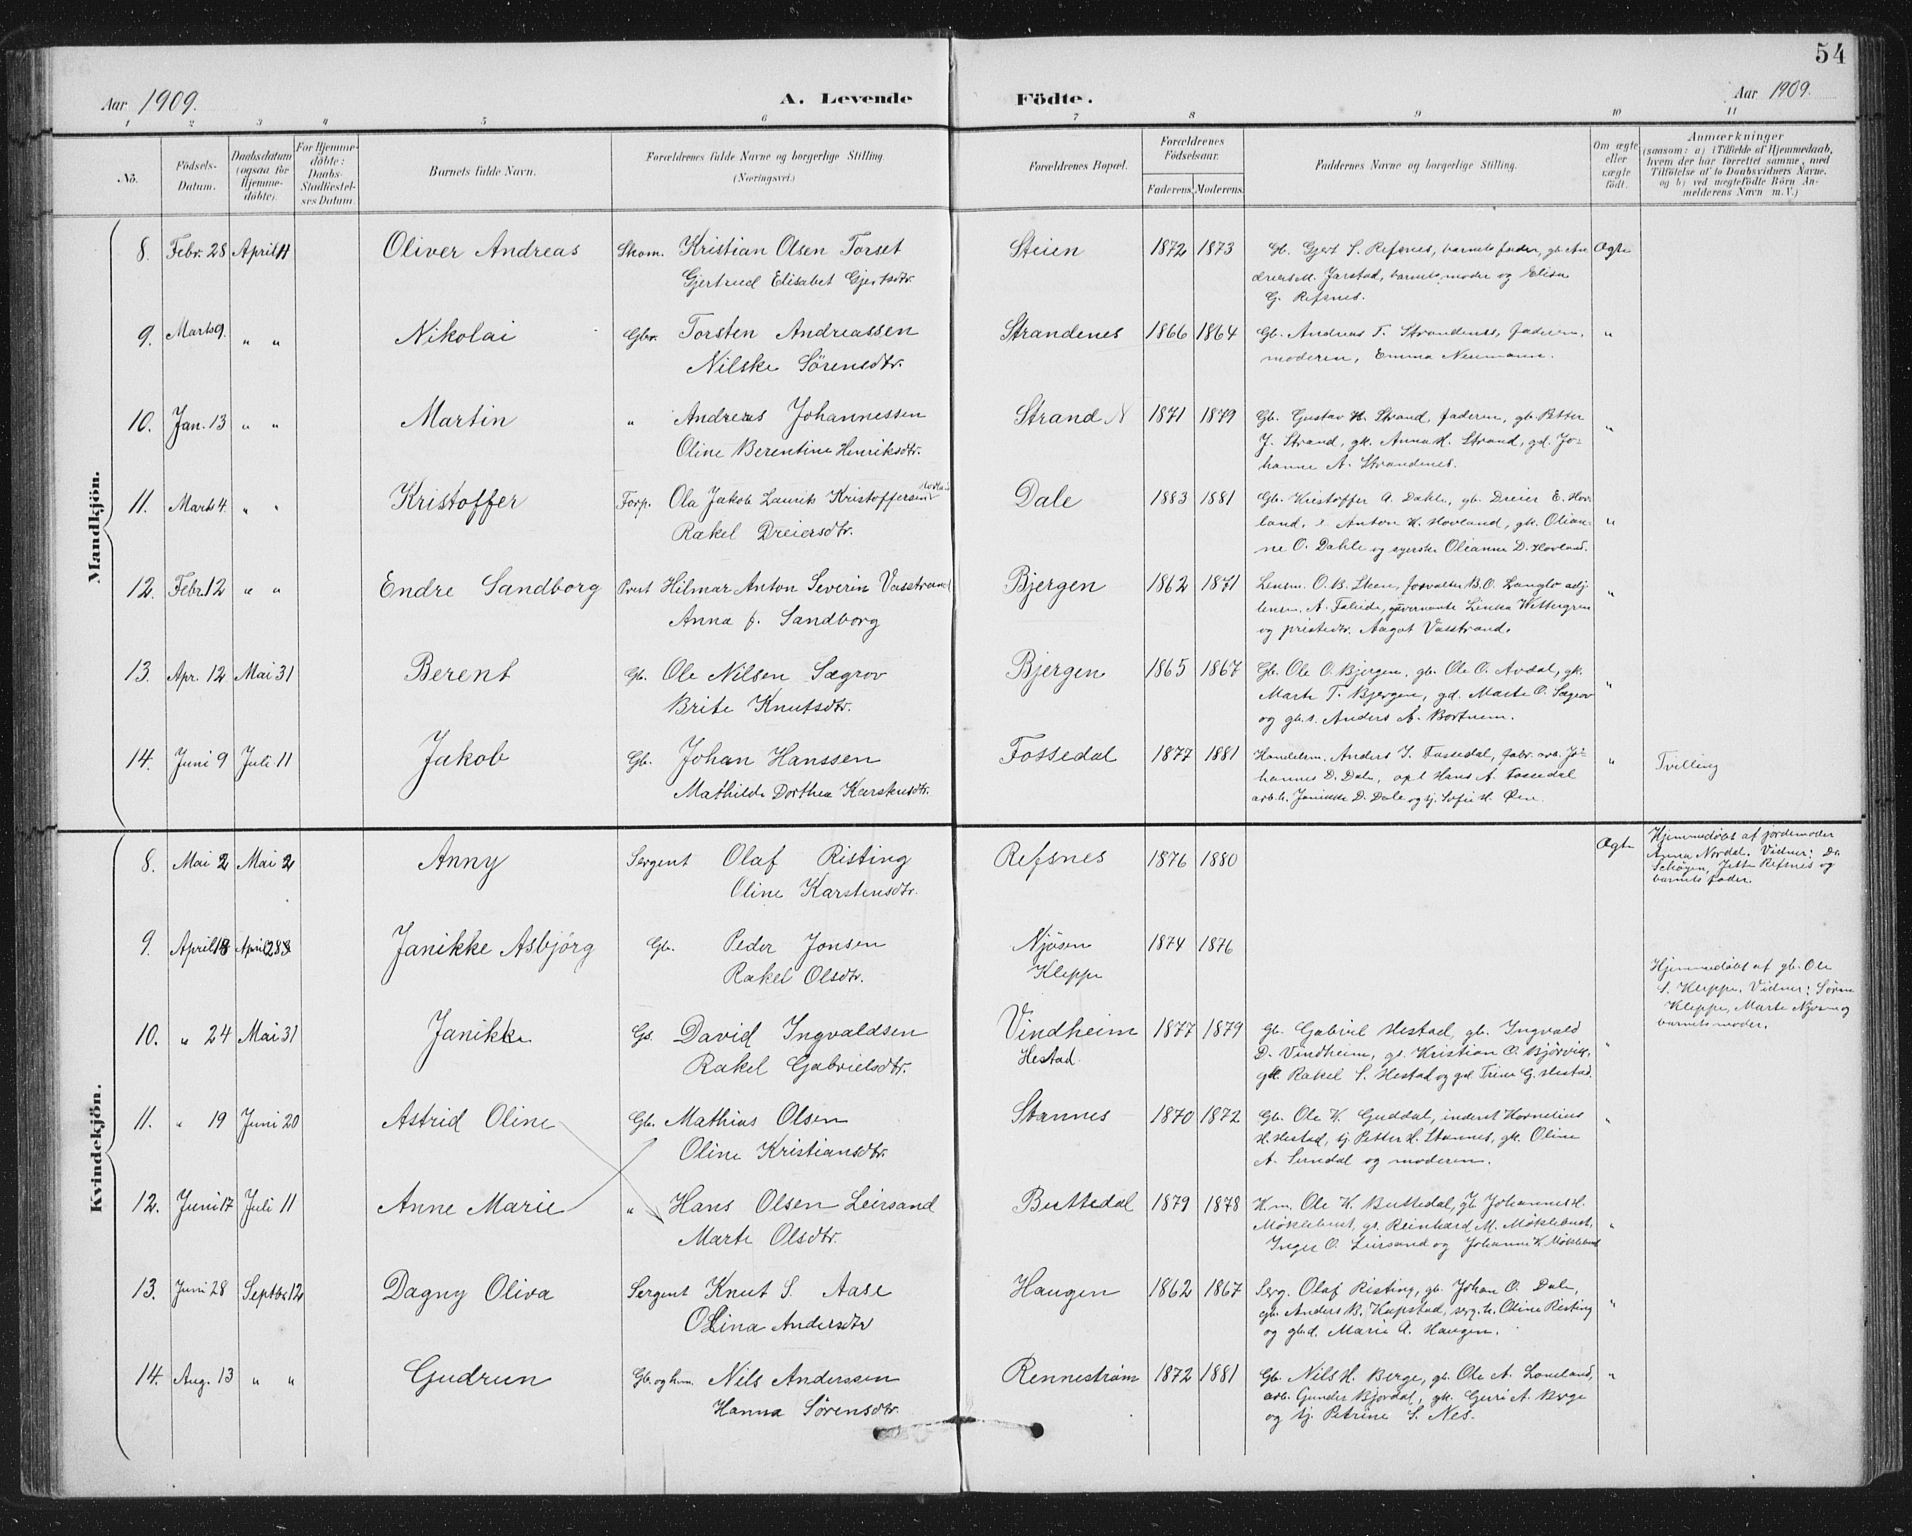 54
Aar 1909. A. Levende Födte. Aar 1909.
1 2 3 4 5 6 7 8 9 10 11
Nō. Födsels-Datum. Daabsdatum (ogsaa for Hjemmedöbte). For Hjemmedöbte: Daabs-Stadfæstelses Datum. Barnets fulde Navn. Forældrenes fulde Navne og borgerlige Stilling. (Næringsvei.) Forældrenes Bopæl. Forældrenes Födselsaar. Faderens. Moderens. Faddernes Navne og borgerlige Stilling. Om ægte eller uægte födt. Anmærkninger (saasom: a) i Tilfælde af Hjemmedaab, hvem der har forrettet samme, med Tilföielse af to Daabsvidners Navne, og b) ved uægtefödte Börn Anmelderens Navn m. V.)
Mandkjön.
8. Febr. 28 April 11 Oliver Andreas Skom. Kristian Olsen Torset Steien 1872 1873 Gb. Gjert S. Refsnes, barnets fader, gb. An- Ægte
Gjertrud Elisabet Gjertsdtr. dreas M. Jarstad, barnets moder og Elisa
G. Refsnes.
9. Marts 9. " " Nikolai Gbr. Torsten Andreassen Strandenes 1866 1864 Gb. Andreas T. Strandenes, faderen, "
Nilske Sörensdtr. moderen, Emma Neumann.
10. Jan. 13 " " Martin " Andreas Johannessen Strand N 1871 1879 Gb. Gustav H. Strand, faderen, gb. Petter "
Oline Berentine Henriksdtr. J. Strand, gk. Anna H. Strand, gd. Jo-
hanne A. Strandenes.
11. Marts 4. " " Kristoffer Forp. Ola Jakob Laurits Kristoffersen Dale 1883 1881 Gb. Kristoffer A. Dahle, gb. Dreier E. Hov- "
Rakel Dreiersdtr. land, Anton K. Hovland, gk. Olian-
ne O. Dahle og syerske Olianne D. Hovland.
12. Febr. 12 " " Endre Sandborg Prest Hilmar Anton Severin Vasstrand Bjergen 1862 1871 Lensm. O. B. Steen, B. O. Langlo adj "
Anna f. Sandborg lensm. A. Taleide, guvernante Linka Wettergren
og prestedtr. Aagot Vasstrand.
13. Apr. 12 Mai 31 Berent Gb. Ole Nilsen Sægrov Bjergen 1865 1867 Gb. Ole O. Bjergen, gb. Ole O. Avdal, gk. "
Brite Knutsdtr. Marte T. Bjergen, gd. Marte O. Sægrov
og gb.s. Anders A. Bortnem.
14. Juni 9 Juli 11 Jakob Gb. Johan Hanssen Fossedal 1877 1881 Handelsm. Anders J. Fossedal, fabr. arb. Jo- " Tvilling
Mathilde Dorthea Karstensdtr. hannes D. Dale, opl Hans A. Fossedal
arb.h. Janikke D. Dale og tj. Sofie H. Øen.
Kvindekjön.
8. Mai 2 Mai 2 Anny Sergent Olaf Risting Refsnes 1876 1880 Ægte Hjemmedöbt af jordemoder
Oline Karstensdtr. Anna Nordal. Vidner: Dr.
Schöyen, Jette Refsnes og
barnets fader.
9. April 18 April 28 Janikke Asbjörg Gb. Peder Jonsen Njösen 1874 1876
Rakel Olsdtr. Kleppe Hjemmedöbt af gb. Ole
S. Kleppe. Vidner: Sören
Kleppe, Marte Njösen og
barnets moder.
10. " 24 Mai 31 Janikke Gs. David Ingvaldsen Vindheim 1877 1879 Gb. Gabriel Hestad, gb. Ingvald "
Rakel Gabrielsdtr. Hestad. D. Vindheim, gs. Kristian O. Björvik,
gk. Rakel S. Hestad og gd. Trine G. Hestad.
11. " 19 Juni 20 Astrid Oline Gb. Mathias Olsen Stannes 1870 1872 Gb. Ole K. Guddal, inderst Kornelius "
Oline Kristiansdtr. H. Hestad, tj. Petter H. Stannes, gk. Oline
A. og moderen.
12. Juni 17 Juli 11 Anne Marie " Hans Olsen Leirsand Buttedal 1879 1878 K.m. Ole K. Buttedal, gb. Johannes H.
Marte Olsdtr. Möklebust, gs. Reinhard M. Möklebust, "
Inger O. Leirsand og Johanne K. Möklebust
13. Juni 28 Septbr 12 Dagny Oliva Sergent Knut S. Aase Haugen 1862 1867 Serg. Olaf Risting, gb. Johan O. Dale,
Olina Andersdtr gb. Anders B. Kapstad, serg. h. Oline Risting "
og gb.d. Marie A. Haugen.
14. Aug. 13 " " Gudrun Gb. og hvm. Nils Anderssen Rennestraum 1872 1881 Gb. Nils H. Berge, gb. Ole A. Loneland, "
Hanna Sörensdtr. arb. Gunder Bjordal, gk. Guri A. Berge
og tj. Petrine S. Nes.